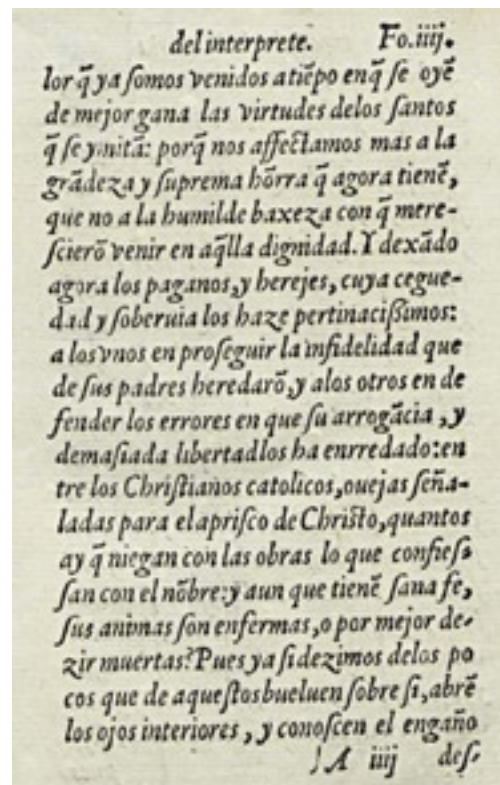 del interprete. Fo.iiij.
lor q̃ ya ſomos venidos atiẽpo enq̃ ſe oyẽ
de mejor gana las virtudes delos ſantos
q̃ ſe ymitã: porq̃ nos affectamos mas a la
grãdeza y ſuprema hõrra q̃ agora tienẽ,
que no a la humilde baxeza con q̃ mere-
ſcierõ venir en aq̃lla dignidad. Y dexãdo
agora los paganos, y herejes, cuya cegue-
dad y ſoberuia los haze pertinacißimos:
a los vnos en proſeguir la infidelidad que
de ſus padres heredarõ, y alos otros en de
fender los errores en que ſu arrogãcia, y
demaſiada libertadlos ha enrredado: en
tre los Chriſtianos catolicos, ouejas ſeña-
ladas para el apriſco de Chriſto, quantos
ay q̃ niegan con las obras lo que confieſ-
ſan con el nõbre: y aun que tienẽ ſana fe,
ſus animas ſon enfermas, o por mejor de-
zir muertas? Pues ya ſi dezimos delos po
cos que de aqueſtos bueluen ſobre ſi, abrẽ
los ojos interiores, y conoſcen el engaño
A iiij deſ-